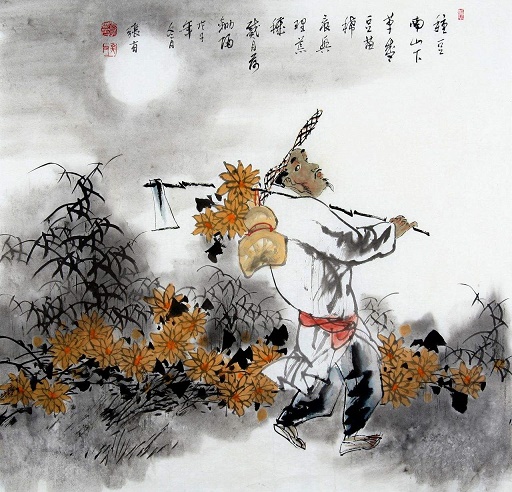 種豆
南山下
草盛
豆苗
稀
晨興
理荒
穢
戴月荷
鋤歸
戊子
年